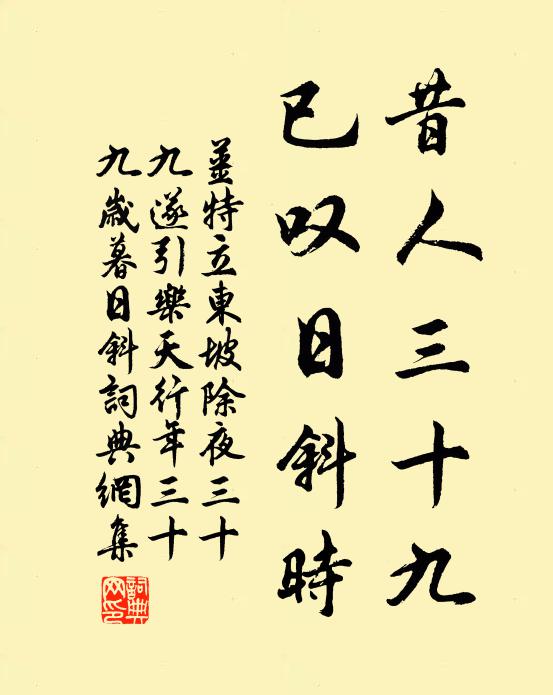 昔人三十九
已叹日斜時
姜特立東坡除夜三十
九遂引樂天行年三十
九歲暮日斜詞典網集
詞典
网印